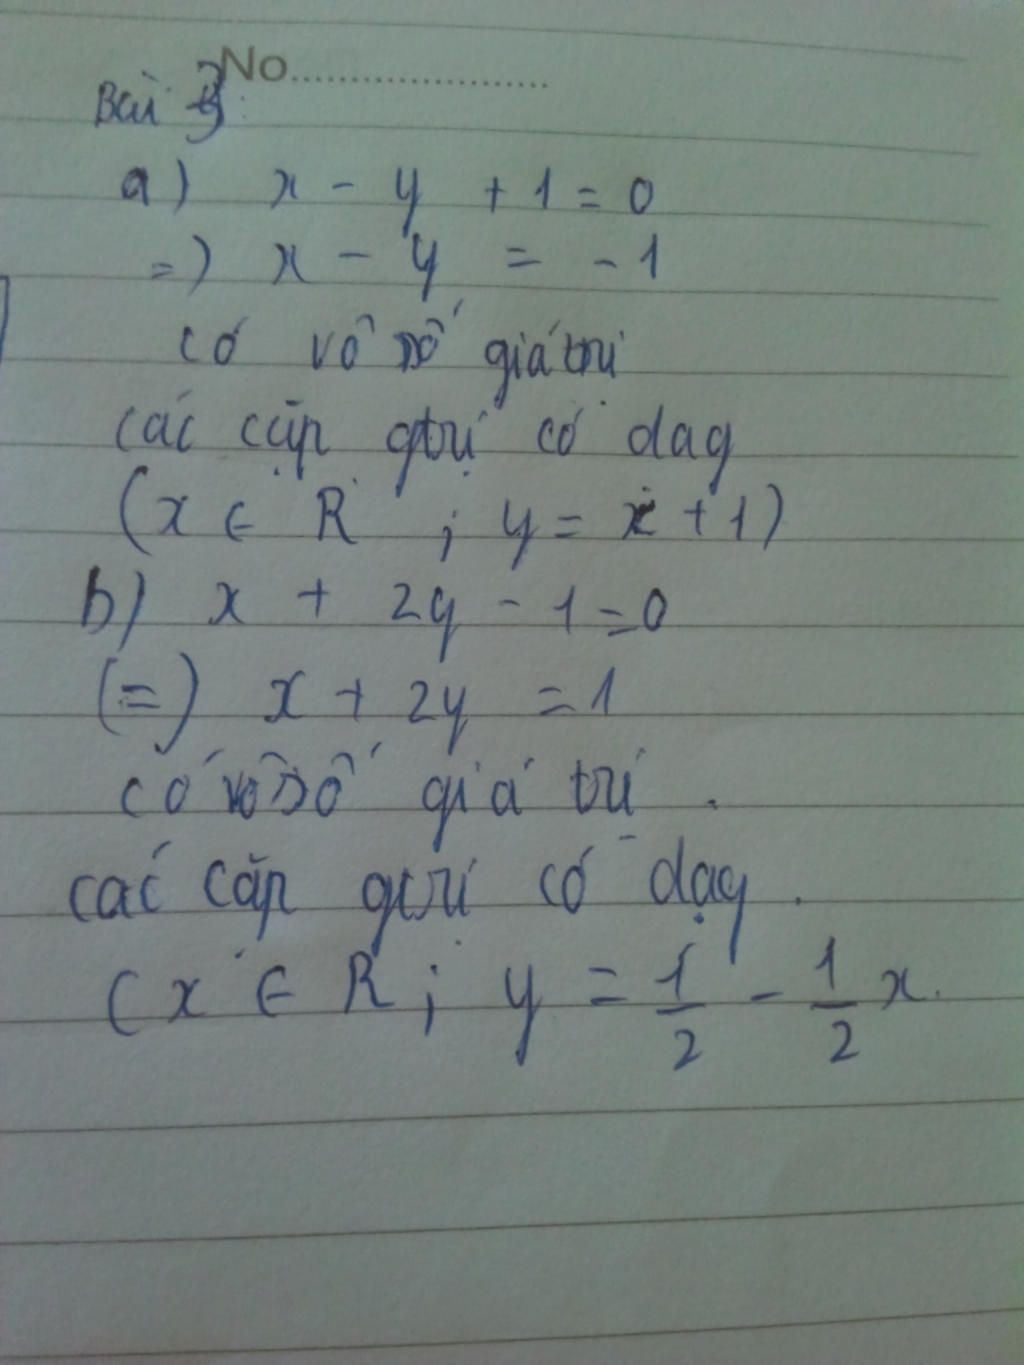 No.....................
Bài 3:
a) x - y + 1 = 0
=) x - y = -1
có vô số giá trị
các cặp gtrị có dag
(x ∈ R ; y = x + 1)
b) x + 2y - 1 = 0
(=) x + 2y = 1
có vô số giá trị .
các cặp gtrị có dạg .
(x ∈ R ; y = 1/2 - 1/2 x .